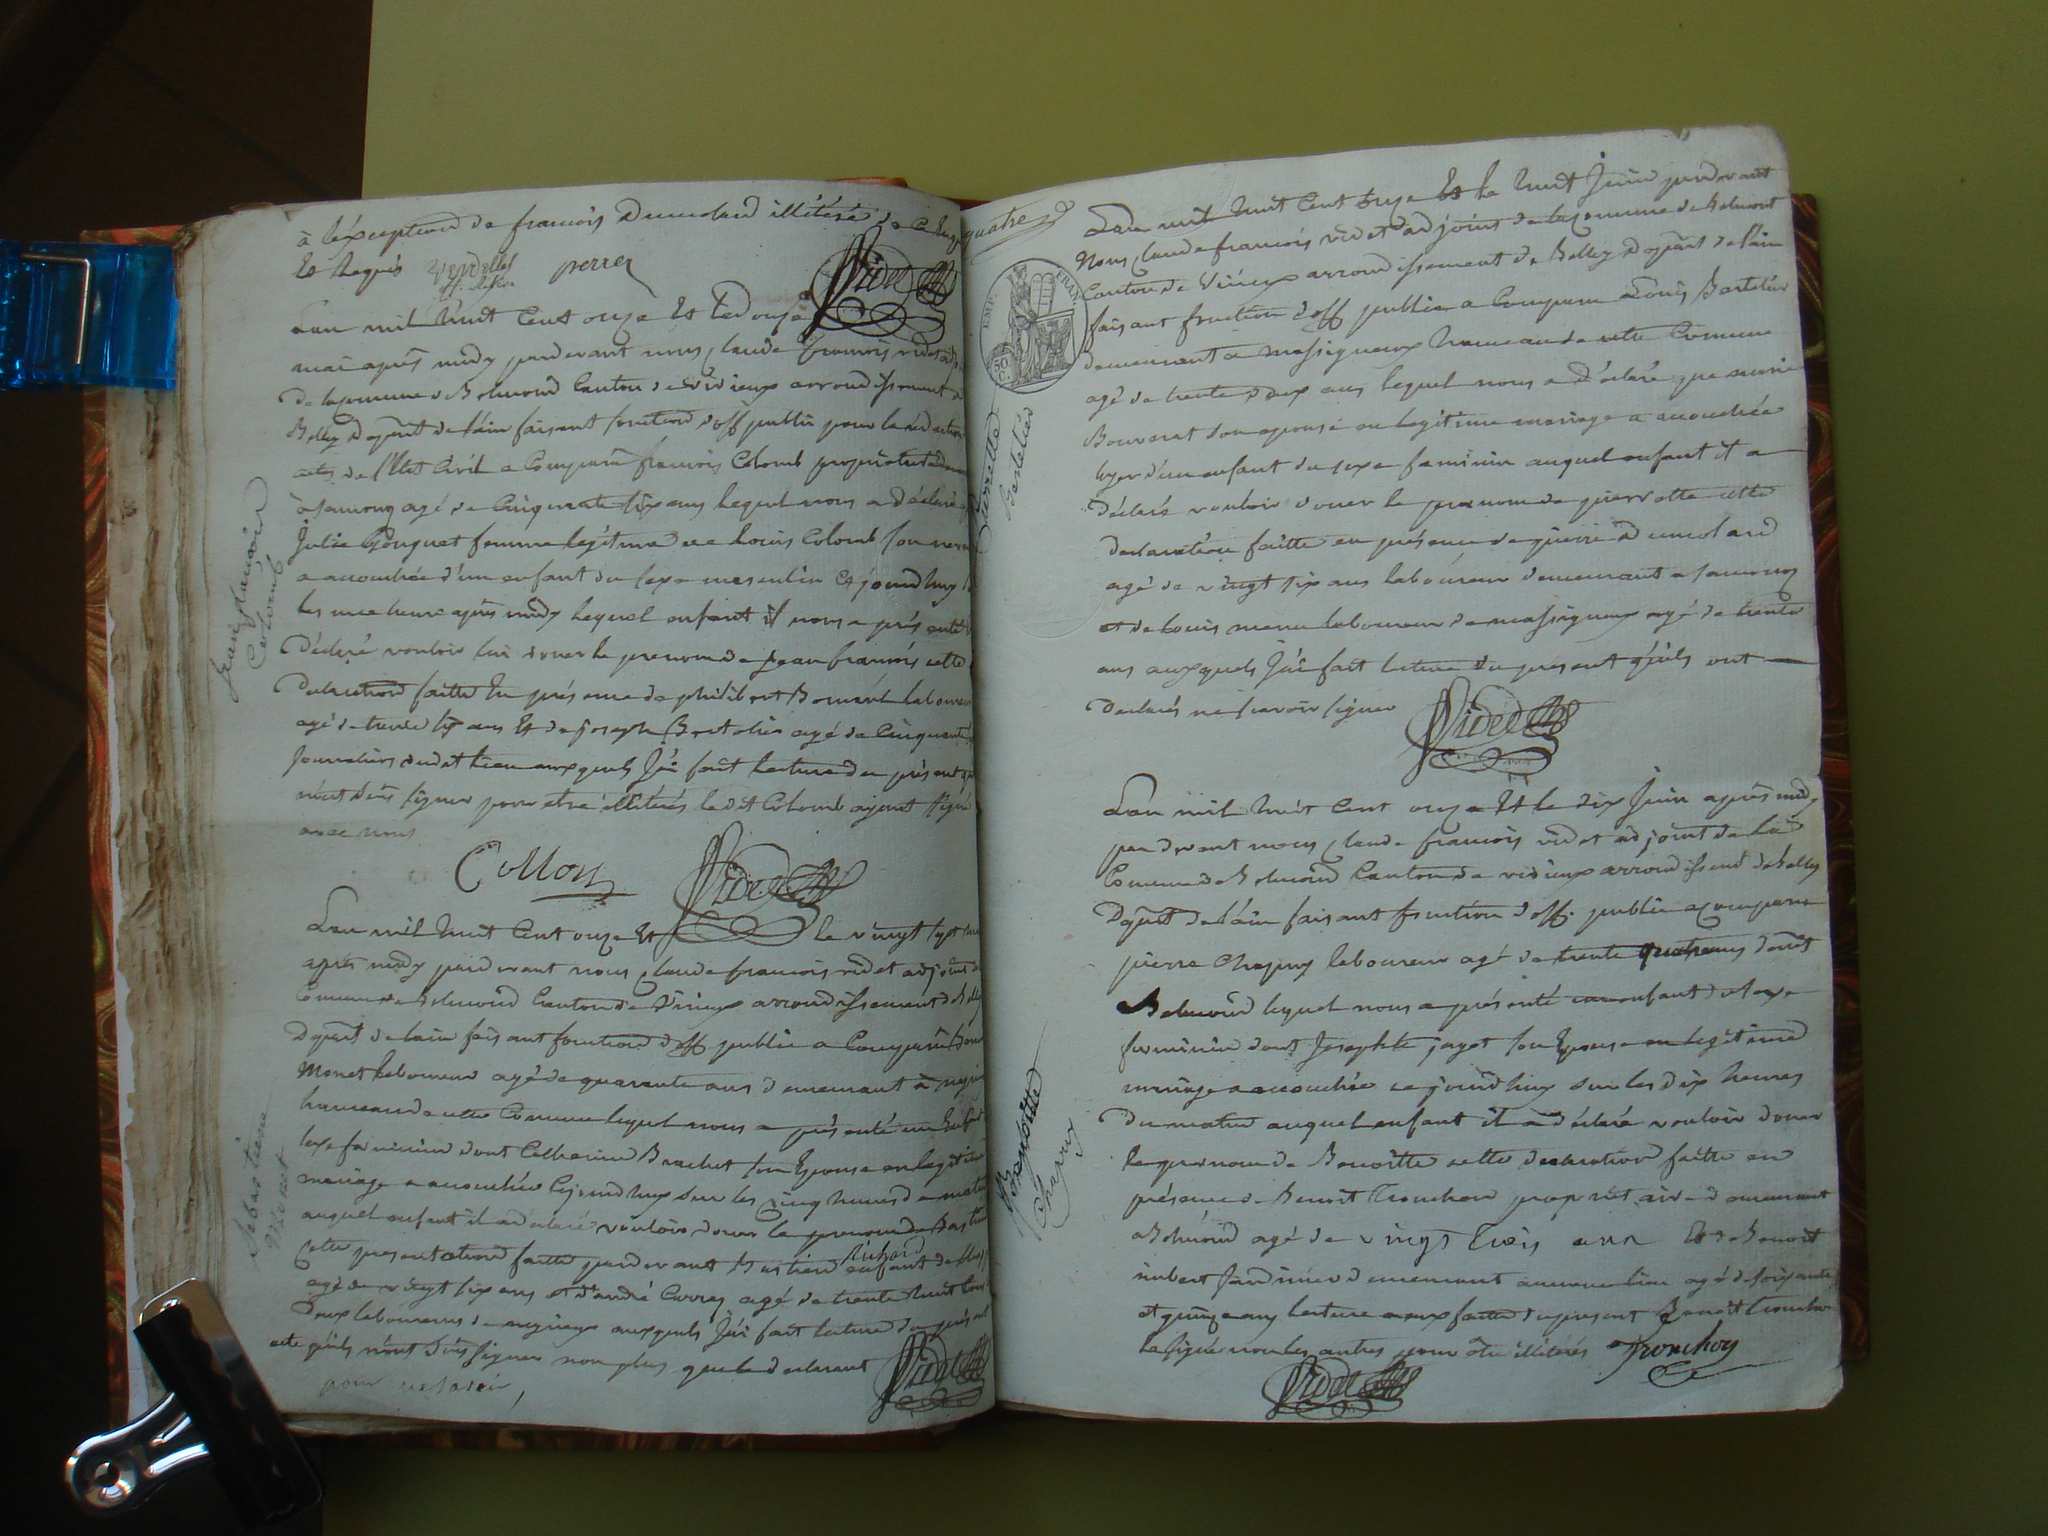 à l'éxception de francois Dumolard illitéré de ce Enqu
Et Requis perret Videt
L'an mil huit Cent onze Et le douze
mai après midy pardevant nous Claude francois videt adj
de la comune de Belmond Canton de virieux arrondissement de
Belley Depart de l'ain faisant fonction d'off public pour la rédaction
actes de l'Etat Civil a Comparu francois Colomb propriétaire
à samonoz agé de Cinquante six ans lequel nous a déclaré
Julie Gonguet femme légitime de Louis Colomb son
a accouchée d'un enfant du sexe masculin Ce jourd'huy
les une heure après midy lequel enfant il nous a présenté
Déclaré vouloir lui doner le prenom de jean francois cette
Declaration faitte En présence de philibert laboureur
agé de trente six ans Et de joseph Bertelier agé de Cinquante
Journaliers dudit lieu auxquels J'ai fait lecture du présent
n'ont sçus signer pour etre illitérés le dit Colomb ayant signé
avec nous
Jean francois
Colomb
Collon Videt
L'an mil huit Cent onze Et le vingt sept
après midy pardevant nous Claude francois videt adjoint
Comune de Belmond Canton de Virieux arrondissement de Belley
Depart de l'ain faisant fonction d'off public a Comparu
Monet laboureur agé de quarante ans demeurant à
hameau de cette Comune lequel nous a présenté un Enfant
sexe feminin dont Catherine Brachet son Epouse en legitime
mariage a accouchée Cejourd'huy sur les cinq heures du matin
auquel enfant il a declaré vouloir doner le prenom de
Cette presentation faitte pardevant
agé de vingt six ans et d'andré agé de trente huit
Deux laboureurs de auxquels J'ai fait lecture du présent
acte qu'ils n'ont sçus signer non plus que le declarant
pour ne savoir, Videt
Sebastiene
Monet
quatre
EMP. FRAN.
50 C.
L'an mil huit Cent onze Et le huit Juin pardevant
Nous Claude francois videt adjoint de la Comune de Belmont
Canton de Virieux arrondissement de Belley Depart de l'ain
faisant fonction d'off public a Comparu Louis Bertelier
demeurant a massigneux hameau de cette Comune
agé de trente deux ans lequel nous a déclaré que
Bouverat son epouse en legitime mariage a accouchée
hyer d'un enfant du sexe feminin auquel enfant il a
déclaré vouloir doner le prenom de pierrette cette
declaration faitte en présence de pierre Dumolard
agé de vingt six ans laboureur demeurant a samonoz
et de Louis laboureur de massigneux agé de trente
ans auxquels J'ai fait lecture du présent qu'ils ont
Declarés ne scavoir signer Videt
Pierrette
Bertelier
L'an mil huit Cent onze Et le dix Juin après midy
par devant nous Claude francois videt adjoint de la
Comune de Belmond Canton de virieux arrondissemt de Belley
Depart de l'ain faisant fonction d'off. public a comparu
pierre Chapuy laboureur agé de trente quatre ans
Belmond lequel nous a présenté un enfant du sexe
feminin dont Josephte jayet son Epouse en legitime
mariage a accouchée ce jourd'huy sur les dix heures
du matin auquel enfant il a déclaré vouloir doner
le prenom de Benoitte cette declaration faitte en
présence de Benoit Tronchon propriétaire demeurant
a Belmond agé de vingt trois ans Et de Benoit
imbert Jardinier demeurant au meme lieu agé de soixante
et quinze ans lecture a eux faitte du present Benoit Tronchon
la signé non les autres pour être illitérés Tronchon
Videt
Benoitte
Chapuy